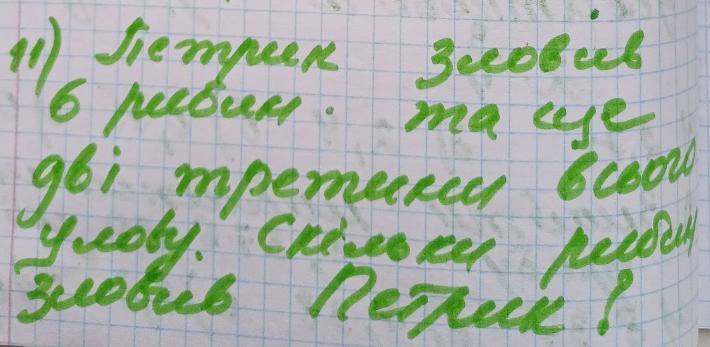 11) Петрик зловив
6 рибин. та ще
дві третини всього
улову. Скільки рибин
зловив Петрик?